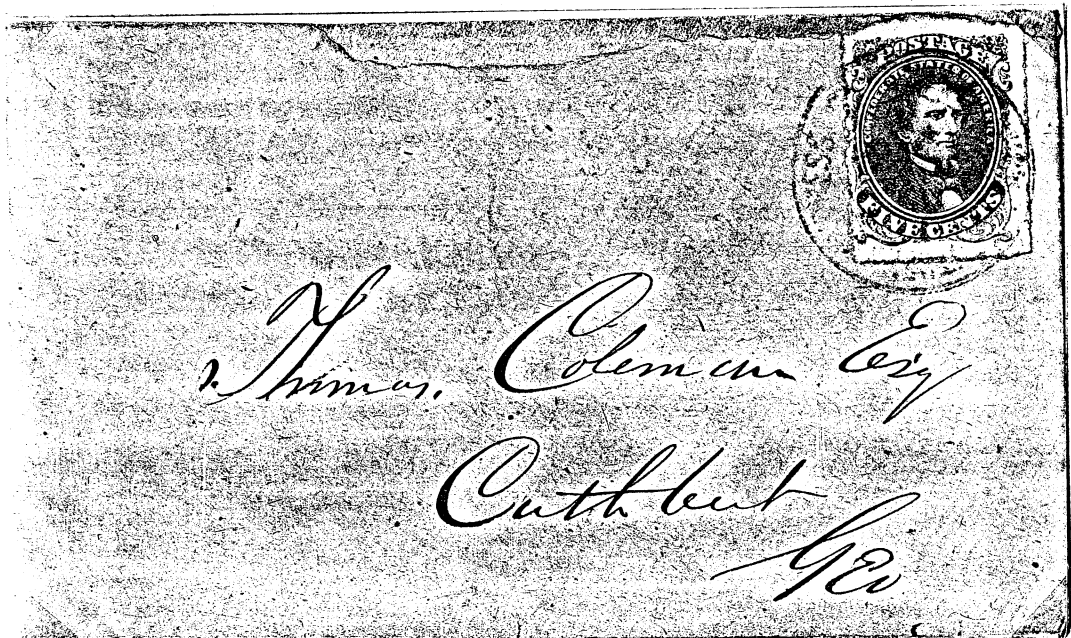 POSTAGE
CONFEDERATE STATES OF AMERICA
FIVE CENTS
Thomas. Coleman Esq
Cuthbert
Geo